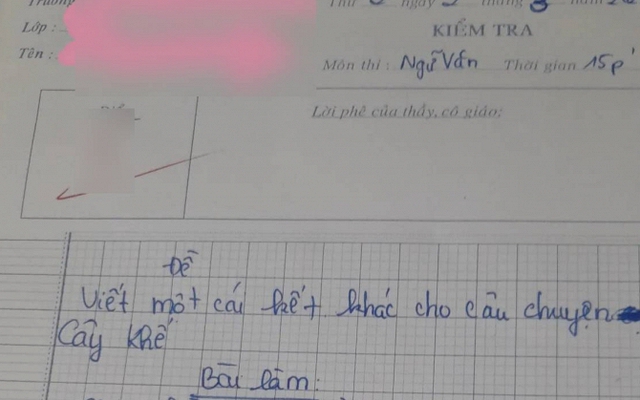 Lớp :
Tên :
KIỂM TRA
Môn thi : Ngữ Văn Thời gian 15p'
Lời phê của thầy, cô giáo:
Đề
Viết một cái kết khác cho câu chuyện
Cây Khế
Bài làm: